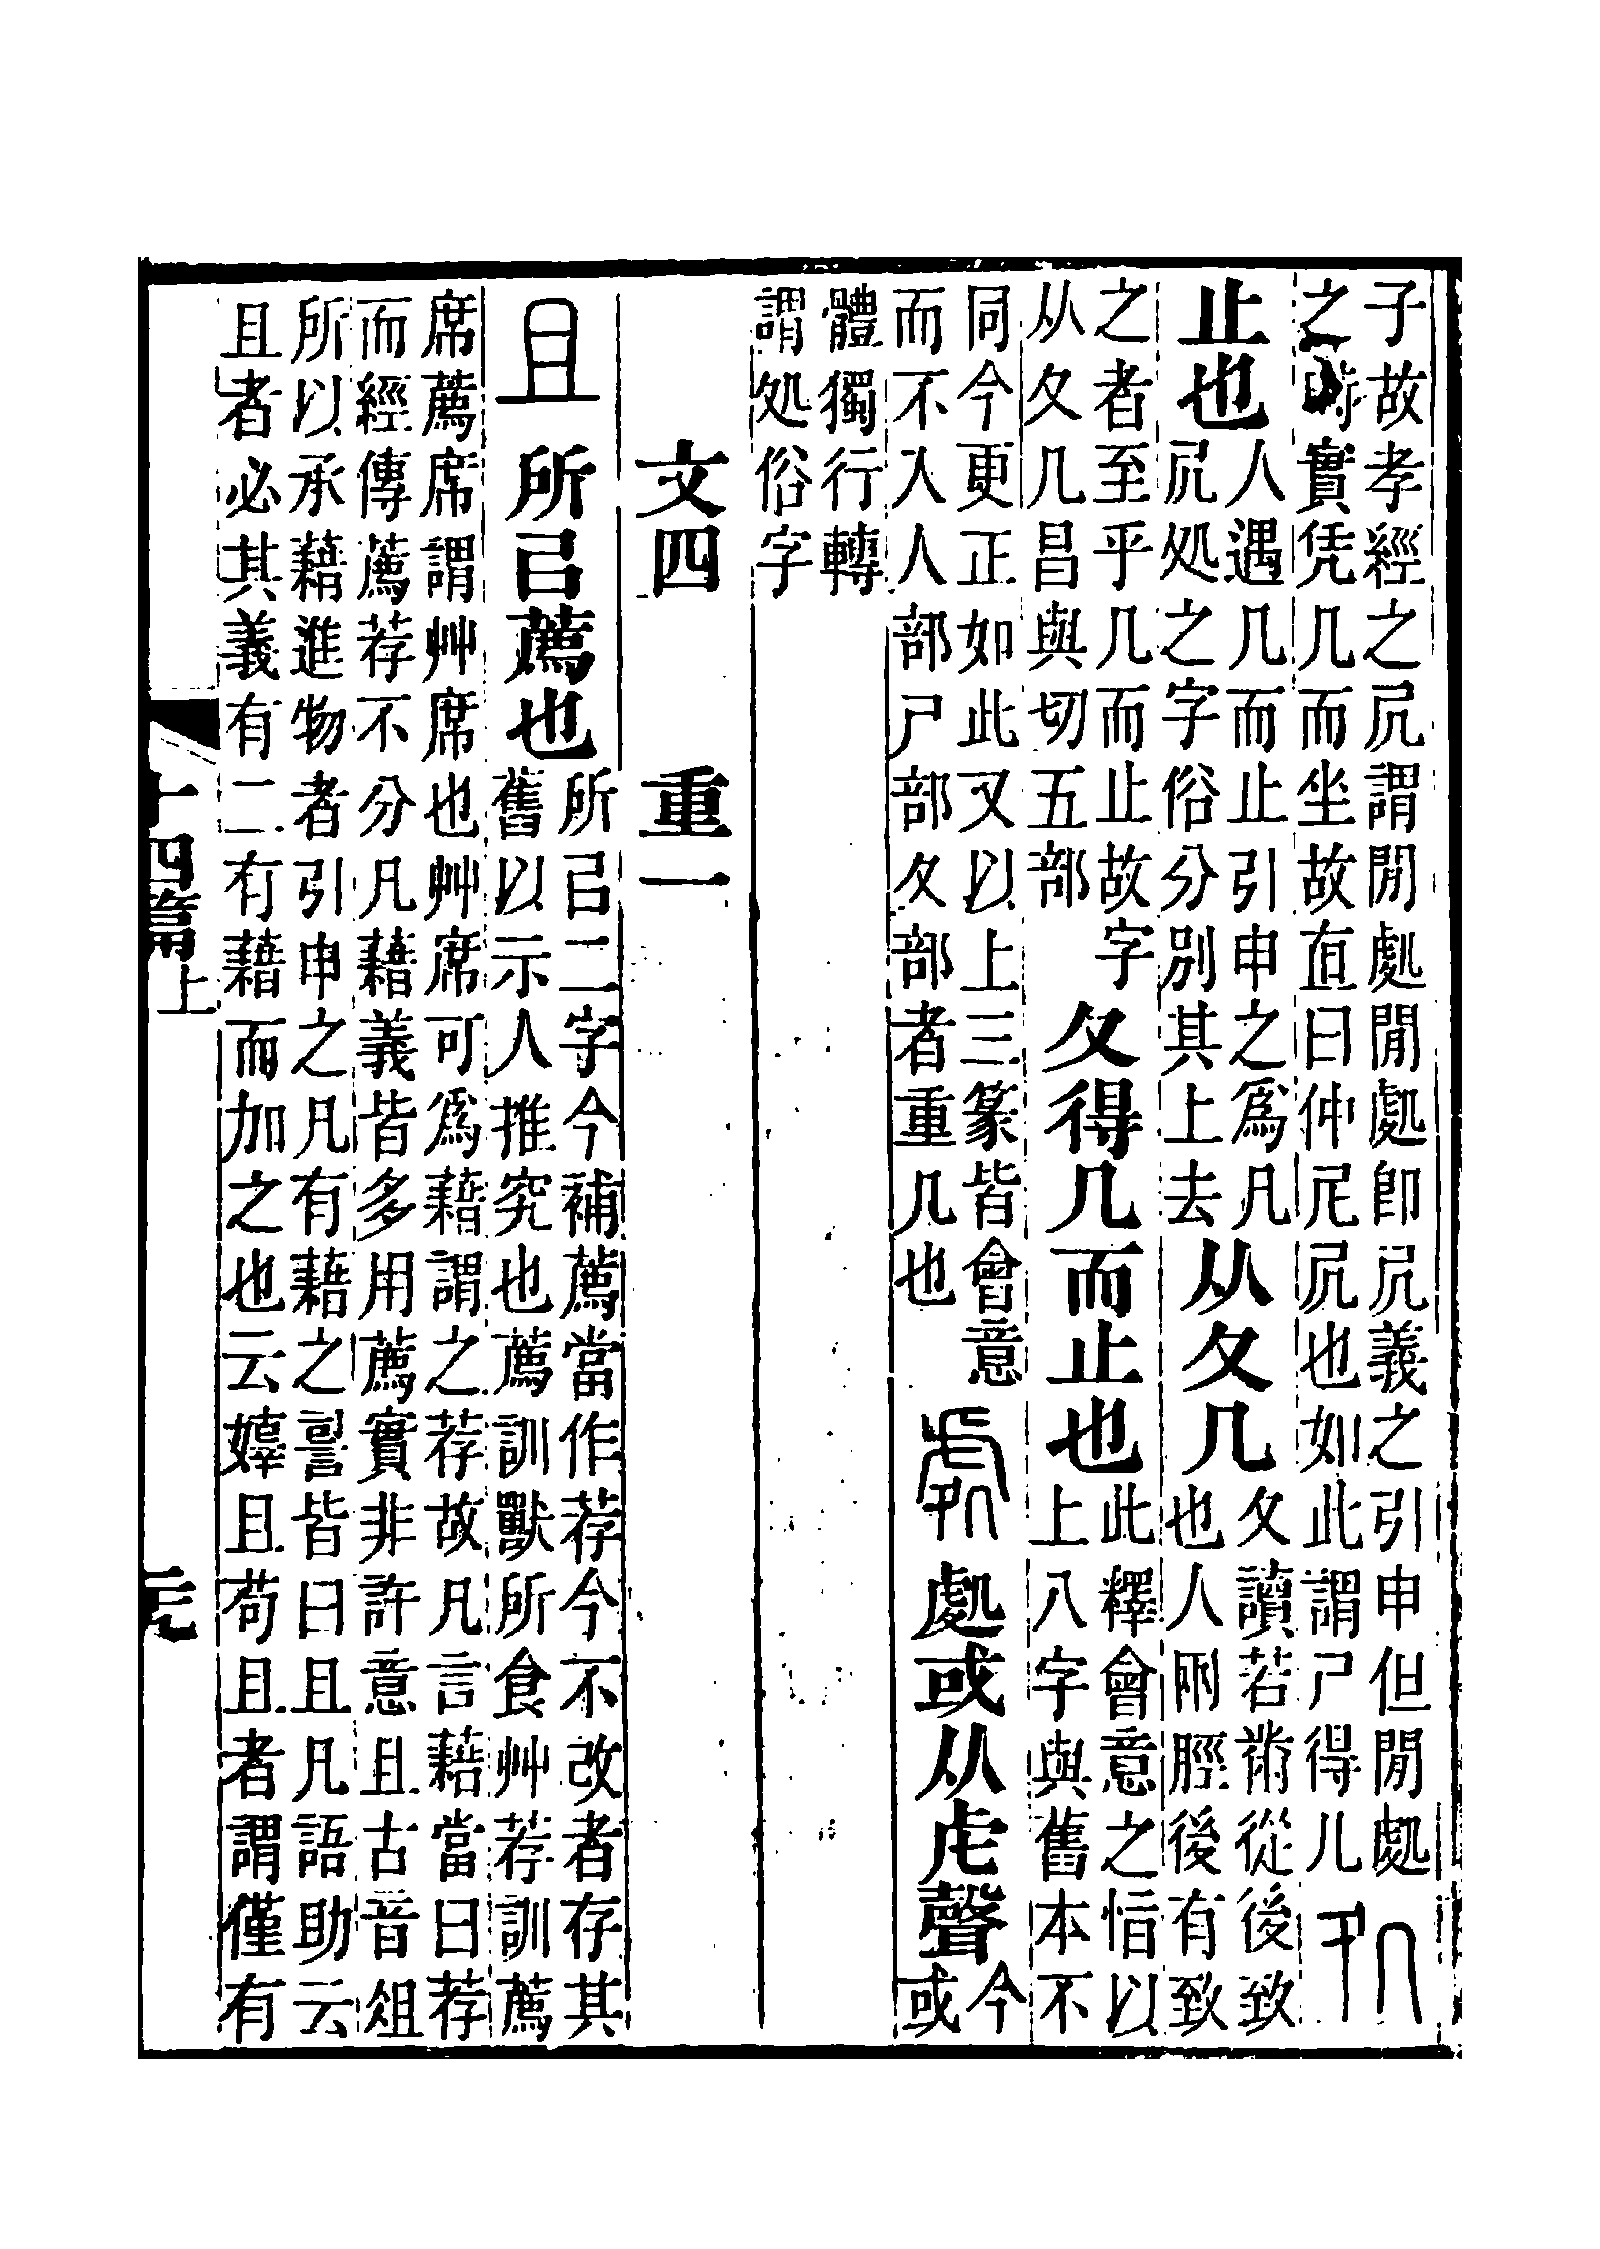 子故孝經之凥謂閒處閒處卽凥義之引申但閒處
之時實凭几而坐故直曰仲尼凥也如此謂尸得几
処
止也
人遇几而止引申之爲凡
凥処之字俗分別其上去
从夂几
夂讀若黹從後致
也人兩脛後有致
之者至乎几而止故字
从夂几昌與切五部
夂得几而止也
此釋會意之恉以
上八字與舊本不
同今更正如此又以上三篆皆會意
而不入人部尸部夂部者重几也
處
處或从虍聲
今
或
體獨行轉
謂処俗字
文四　重一
且
所㠯薦也
所㠯二字今補薦當作荐今不改者存其
舊以示人推究也薦訓獸所食艸荐訓薦
席薦席謂艸席也艸席可爲藉謂之荐故凡言藉當曰荐
而經傳薦荐不分凡藉義皆多用薦實非許意且古音俎
所以承藉進物者引申之凡有藉之䛐皆曰且凡語助云
且者必其義有二有藉而加之也云嫴且苟且者謂僅有
十四篇上